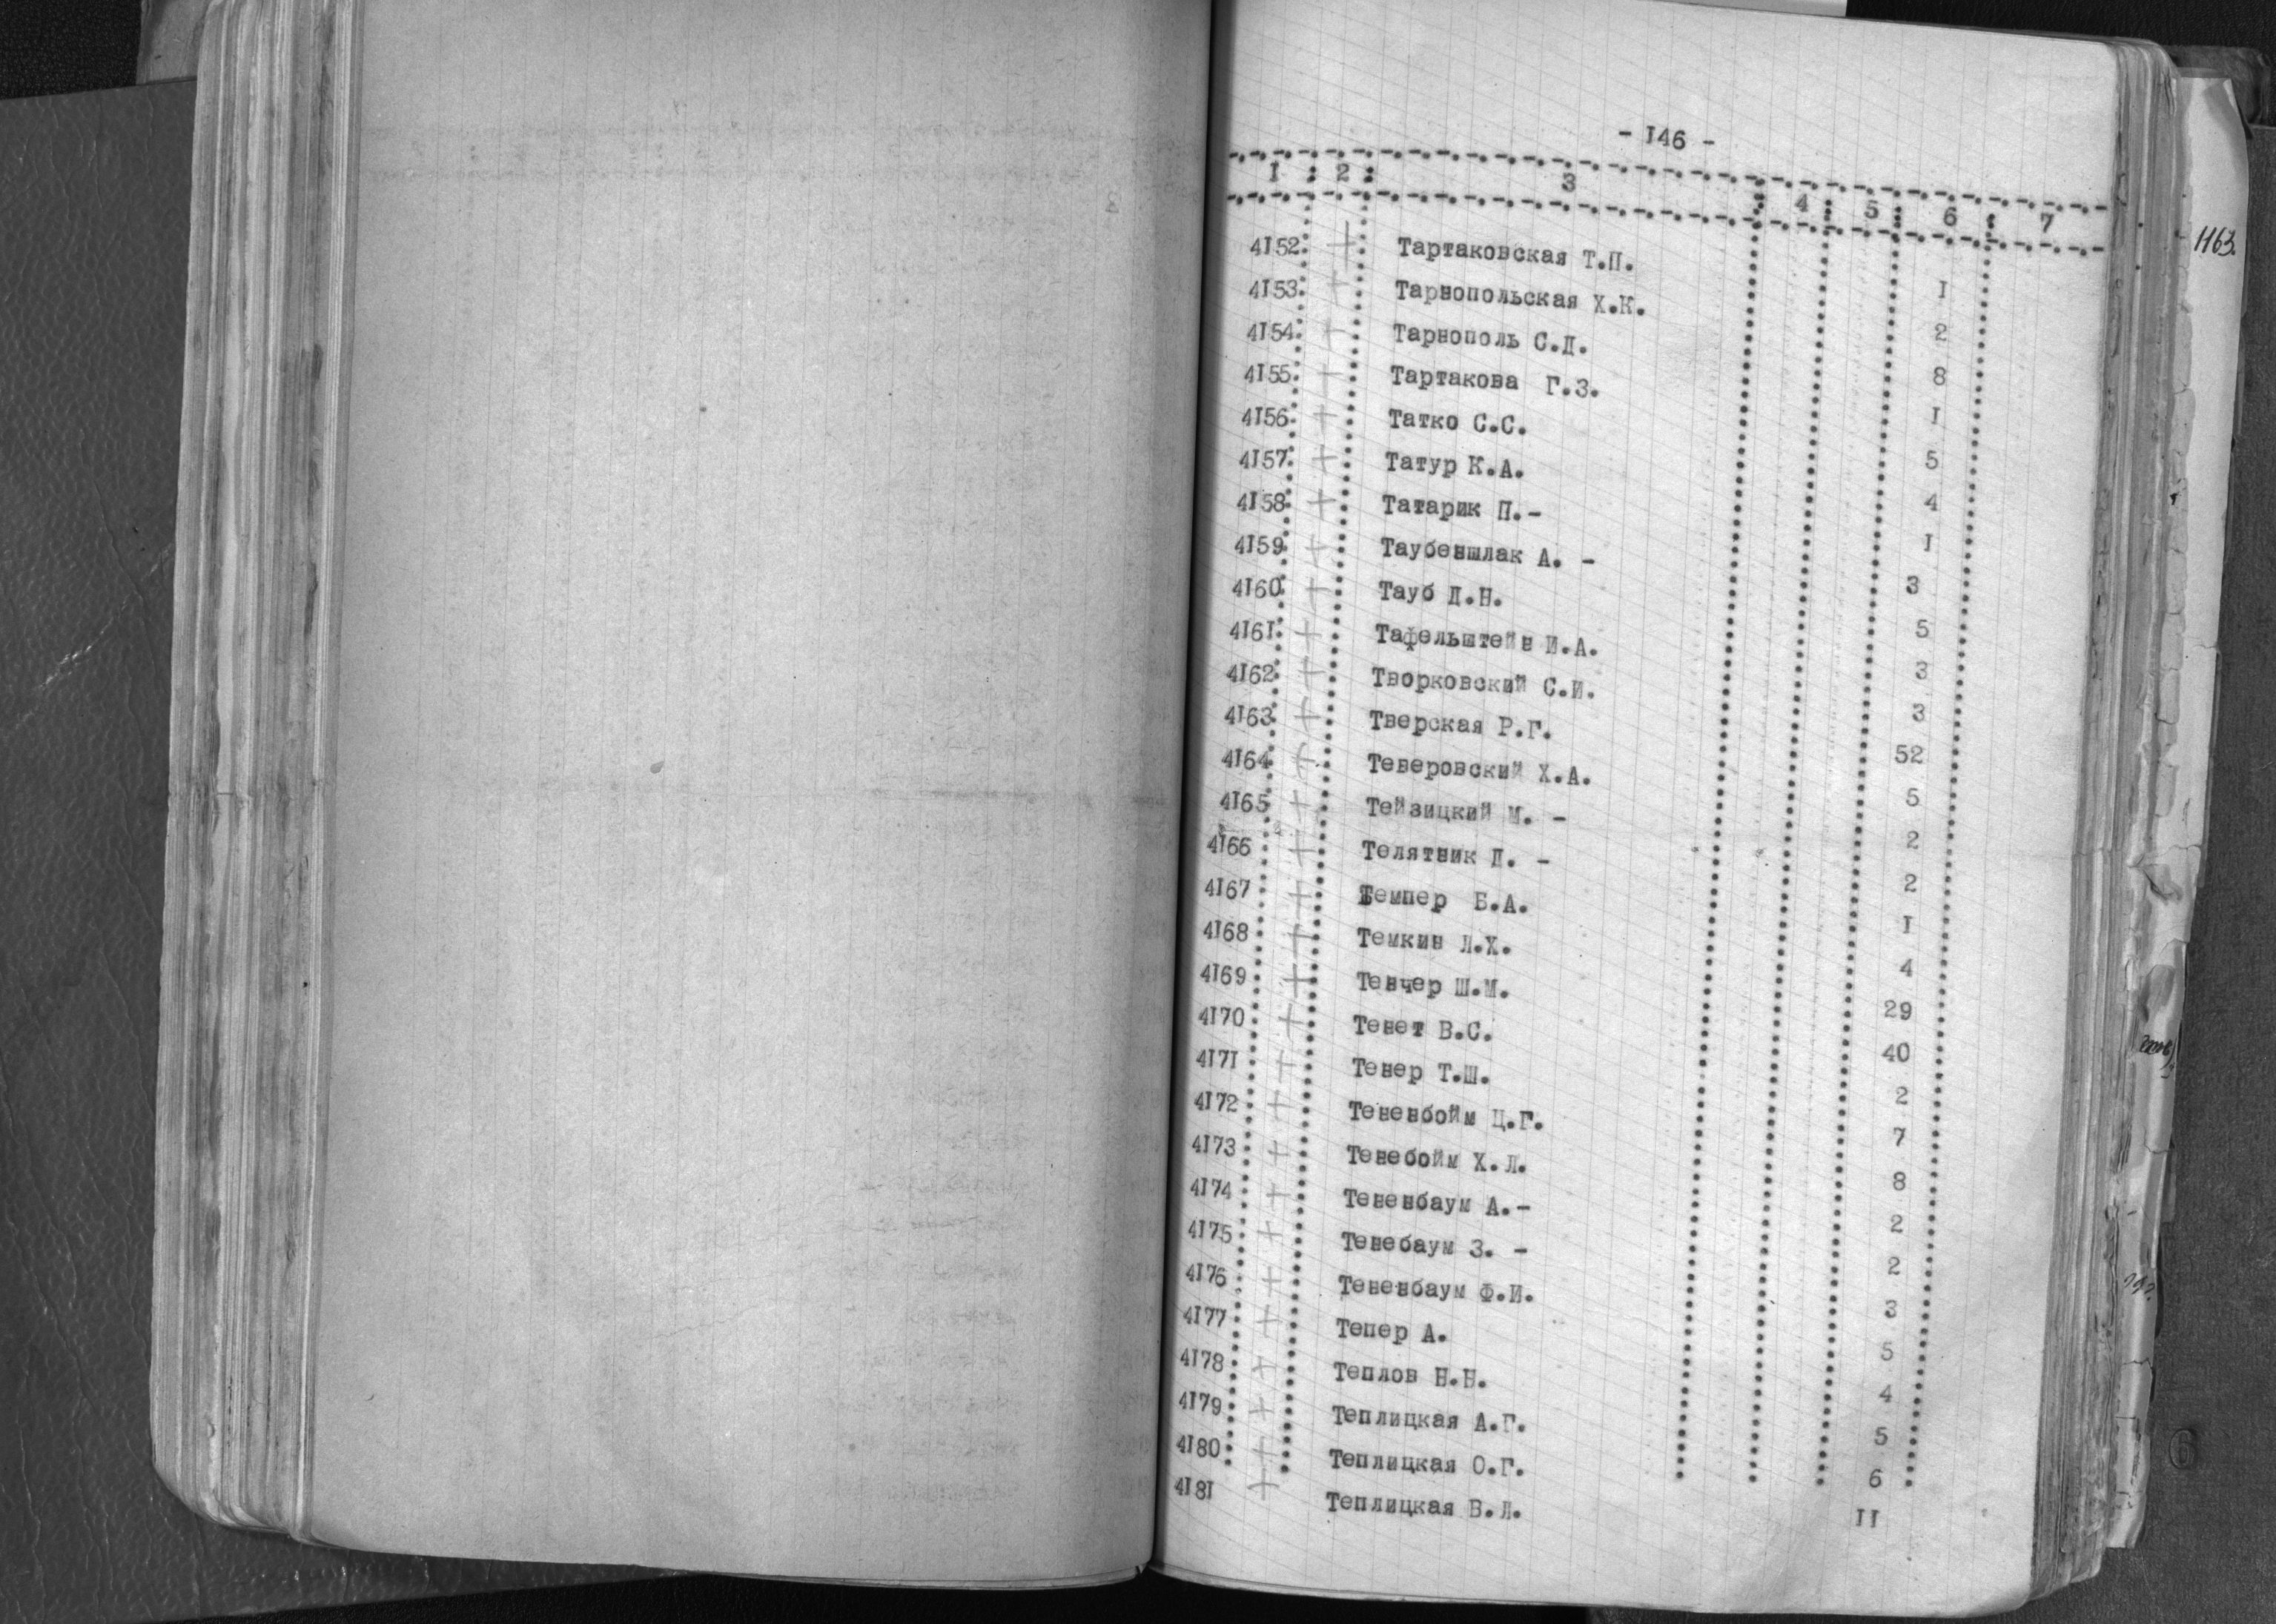 - I46 -
I : 2 : 3 : 4 : 5 : 6 : 7
II63.
4I52 + Тартаковская Т.П. I
4I53 + Тарнопольская Х.К. 2
4I54 + Тарнополь С.Д. 8
4I55 + Тартакова Г.З. I
4I56 + Татко С.С. 5
4I57 + Татур К.А. 4
4I58 + Татарик П.- I
4I59 + Таубеншлак А. - 3
4I60 + Тауб Д.Н. 5
4I6I + Тафельштейн И.А. 3
4I62 + Творковский С.И. 3
4I63 + Тверская Р.Г. 52
4I64 + Теверовский Х.А. 5
4I65 + Тейзицкий М. - 2
4I66 + Телятник Д. - 2
4I67 + Темпер Б.А. I
4I68 + Темкин Л.Х. 4
4I69 + Тенчер Ш.М. 29
4I70 + Тенет В.С. 40
4I7I + Тенер Т.Ш. 2
4I72 + Тененбойм Ц.Г. 7
4I73 + Тенебойм Х.Л. 8
4I74 + Тененбаум А.- 2
4I75 + Тенебаум З. - 2
4I76 + Тененбаум Ф.И. 3
4I77 + Тепер А. 5
4I78 + Теплов Н.Н. 4
4I79 + Теплицкая А.Г. 5
4I80 + Теплицкая О.Г. 6
4I8I + Теплицкая В.Л. II